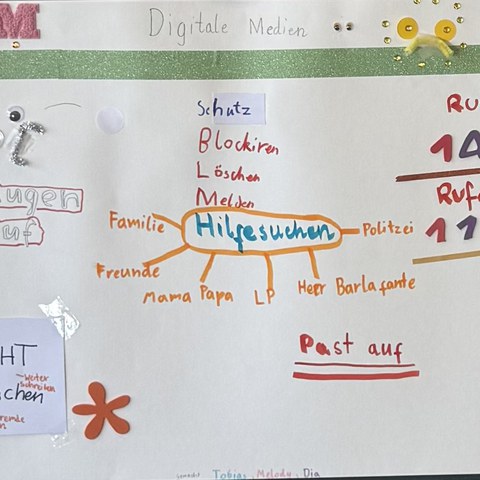 M
Digitale Medien
Schutz
Blockiren
Löschen
Melden
Hilfesuchen
Familie
Freunde
Mama Papa
LP
Herr Barlafante
Politzei
Ru
14
Rufe
11
ugen
uf
HT
-weiter
schreiben
chen
Past auf
Tobias, Melody, Dia